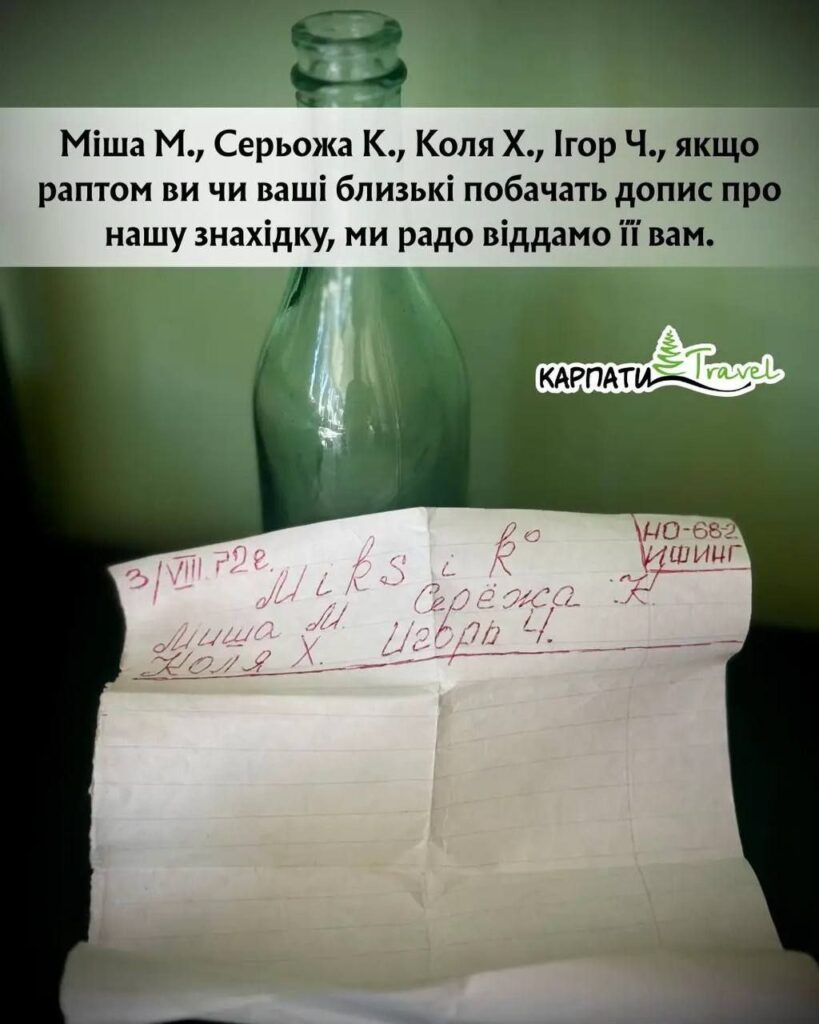 Міша М., Серьожа К., Коля Х., Ігор Ч., якщо
раптом ви чи ваші близькі побачать допис про
нашу знахідку, ми радо віддамо її вам.
КАРПАТИ Travel
3/VIII.72г.
Miksik°
НО-68-2
ИШИНГ
Миша М. Серёжа К.
Коля Х. Игорь Ч.